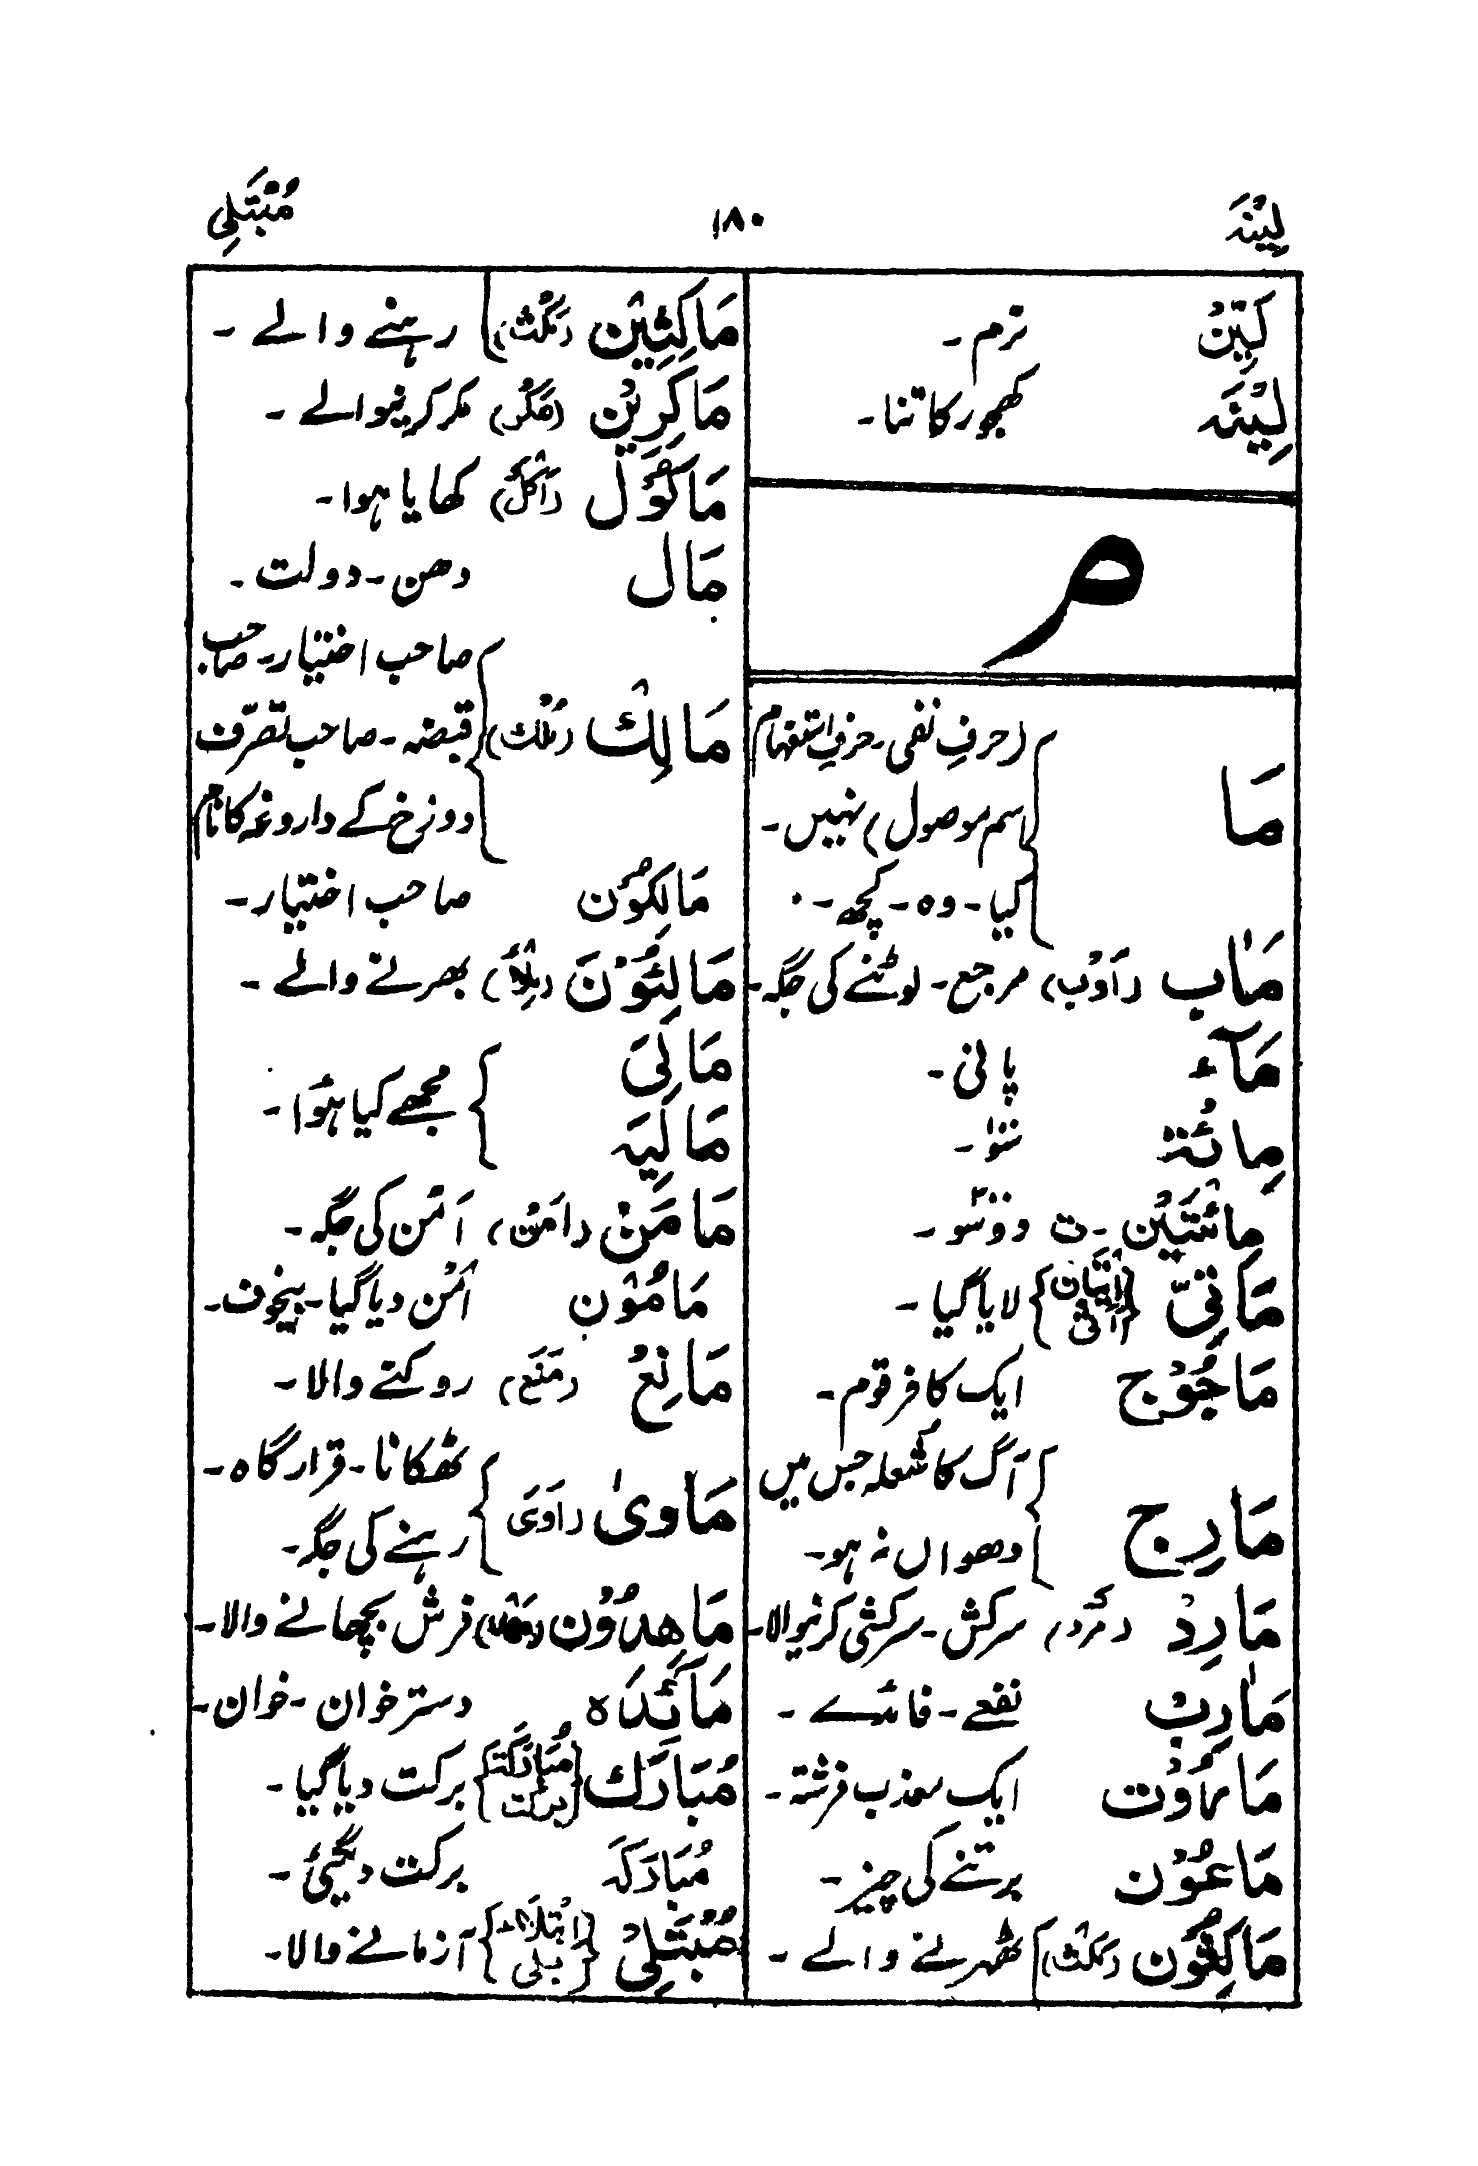 لِیْنَہ ۱۸۰ مُبْتَلِی
لَیِّنٌ نرم۔
لِیْنَہ کھجور کا تنا۔
م
مَا (حرفِ نفی۔ حرفِ استفہام
اسم موصول) نہیں۔
کیا۔ وہ۔ کچھ۔
مَاٰب (اَوْب) مرجع۔ لوٹنے کی جگہ۔
مَآء پانی۔
مِائَۃٌ سَو۔
مِائَتَیْن۔ ت دو سَو۔
مَاتِیّ {اِتْیَان اَتَیَ} لایا گیا۔
مَاجُوْج ایک کافر قوم۔
مَارِج آگ کا شعلہ جس میں
دھواں نہ ہو۔
مَارِدْ (مَرَدَ) سرکش۔ سرکشی کرنیوالا۔
مَاٰرِبْ نفعے۔ فائدے۔
مَارُوْت ایک معذب فرشتہ۔
مَاعُوْن برتنے کی چیز۔
مَاکِثُوْن (مَکْث) ٹھہرنے والے۔
مَاکِثِیْن (مَکْث) رہنے والے۔
مَاکِرِیْن (مَکْر) مکر کرنیوالے۔
مَاکُوْل (اَکْلٌ) کھایا ہوا۔
مَال دھن۔ دولت۔
صاحب اختیار۔ صاحب
مَالِکْ (مُلْک) قبضہ۔ صاحب تصرّف
دوزخ کے داروغہ کا نام
مَالِکُوْن صاحب اختیار۔
مَالِئُوْنَ (مِلْأ) بھرنے والے۔
مَالِیَ
مَالِیَہ مجھے کیا ہوا۔
مَامَنْ (اَمْن) اَمْن کی جگہ۔
مَامُوْن اَمْن دیا گیا۔ بیخوف۔
مَانِعٌ (مَنَعَ) روکنے والا۔
مَاویٰ (اَوَیَ ٹھکانا۔ قرار گاہ۔
رہنے کی جگہ۔
مَاهِدُوْن (مَهْد) فرش بچھانے والا۔
مَآئِدَہ دستر خوان۔ خوان۔
مُبَارَک {مُبَارَکَۃ برکت} برکت دیا گیا۔
مُبَارَکَہ برکت دیگئی۔
مُبْتَلِیْ {اِبْتِلَاء بلی} آزمانے والا۔